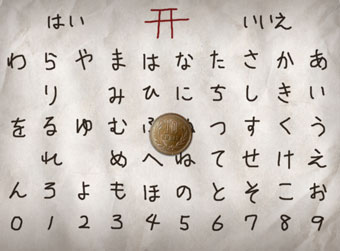 はい いいえ
わ ら や ま は な た さ か あ
り み ひ に ち し き い
を る ゆ む ふ つ す く う
れ め へ ね て せ け え
ん ろ よ も ほ の と そ こ お
0 1 2 3 4 5 6 7 8 9